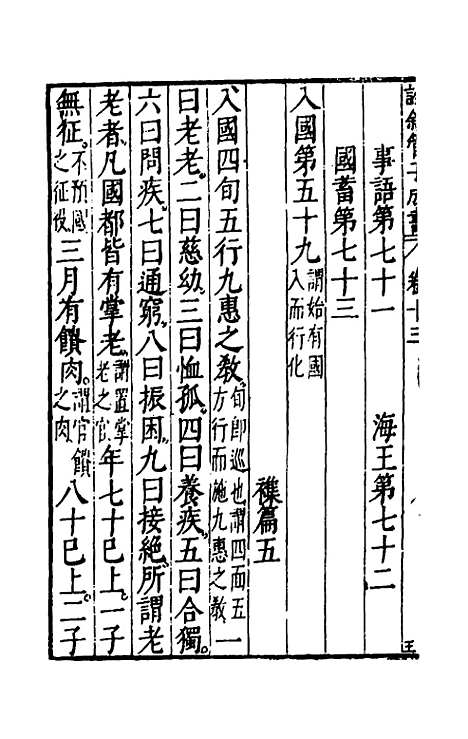 詮敘管子成書 卷十三
事語第七十一 海王第七十二
國蓄第七十三
入國第五十九謂始有國入而行化
襍篇五
入國四旬五行九惠之敎旬即巡也謂四面五方行而施九惠之敎一
曰老老二曰慈幼三曰恤孤四曰養疾五曰合獨
六曰問疾七曰通窮八曰振困九曰接絶所謂老
老者凡國都皆有掌老謂置掌老之官年七十巳上一子
無征不預國之征役三月有饋肉謂官饋之肉八十巳上二子